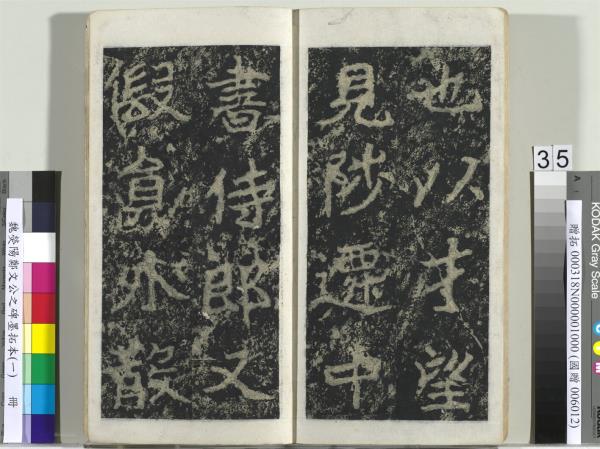 也以才望
見陟遷中
書侍郎又
假員外散
35
魏滎陽鄭文公之碑墨拓本(一) 冊
贈拓 000318N000001000 (國贈 006012)
KODAK Gray Scale
A